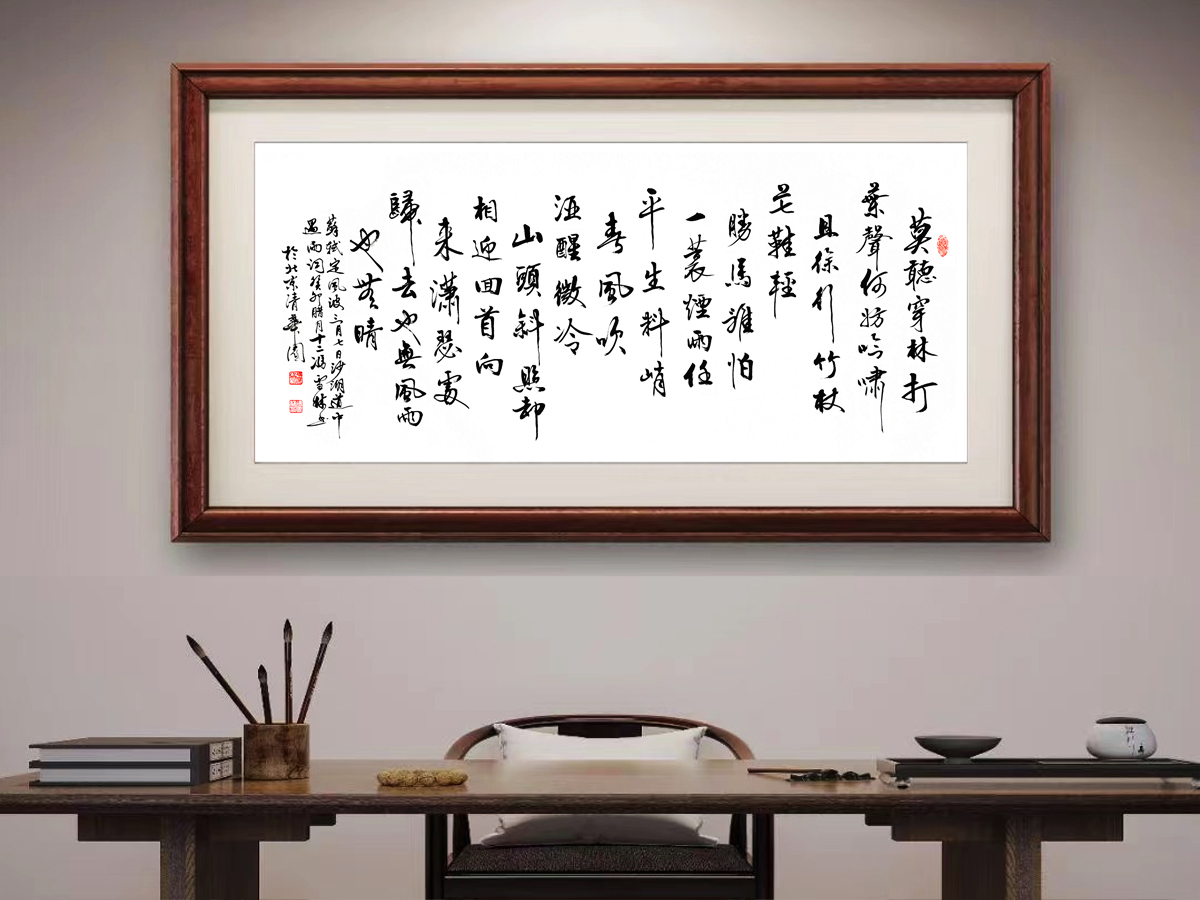 莫聽穿林打
葉聲何妨吟嘯
且徐行竹杖
芒鞋輕
勝馬誰怕
一蓑煙雨任
平生料峭
春風吹
酒醒微冷
山頭斜照却
相迎回首向
来瀟瑟處
歸去也無風雨
也無晴
蘇軾定風波三月七日沙湖道中
遇雨詞癸卯臘月十二馮雪
於北京清華園